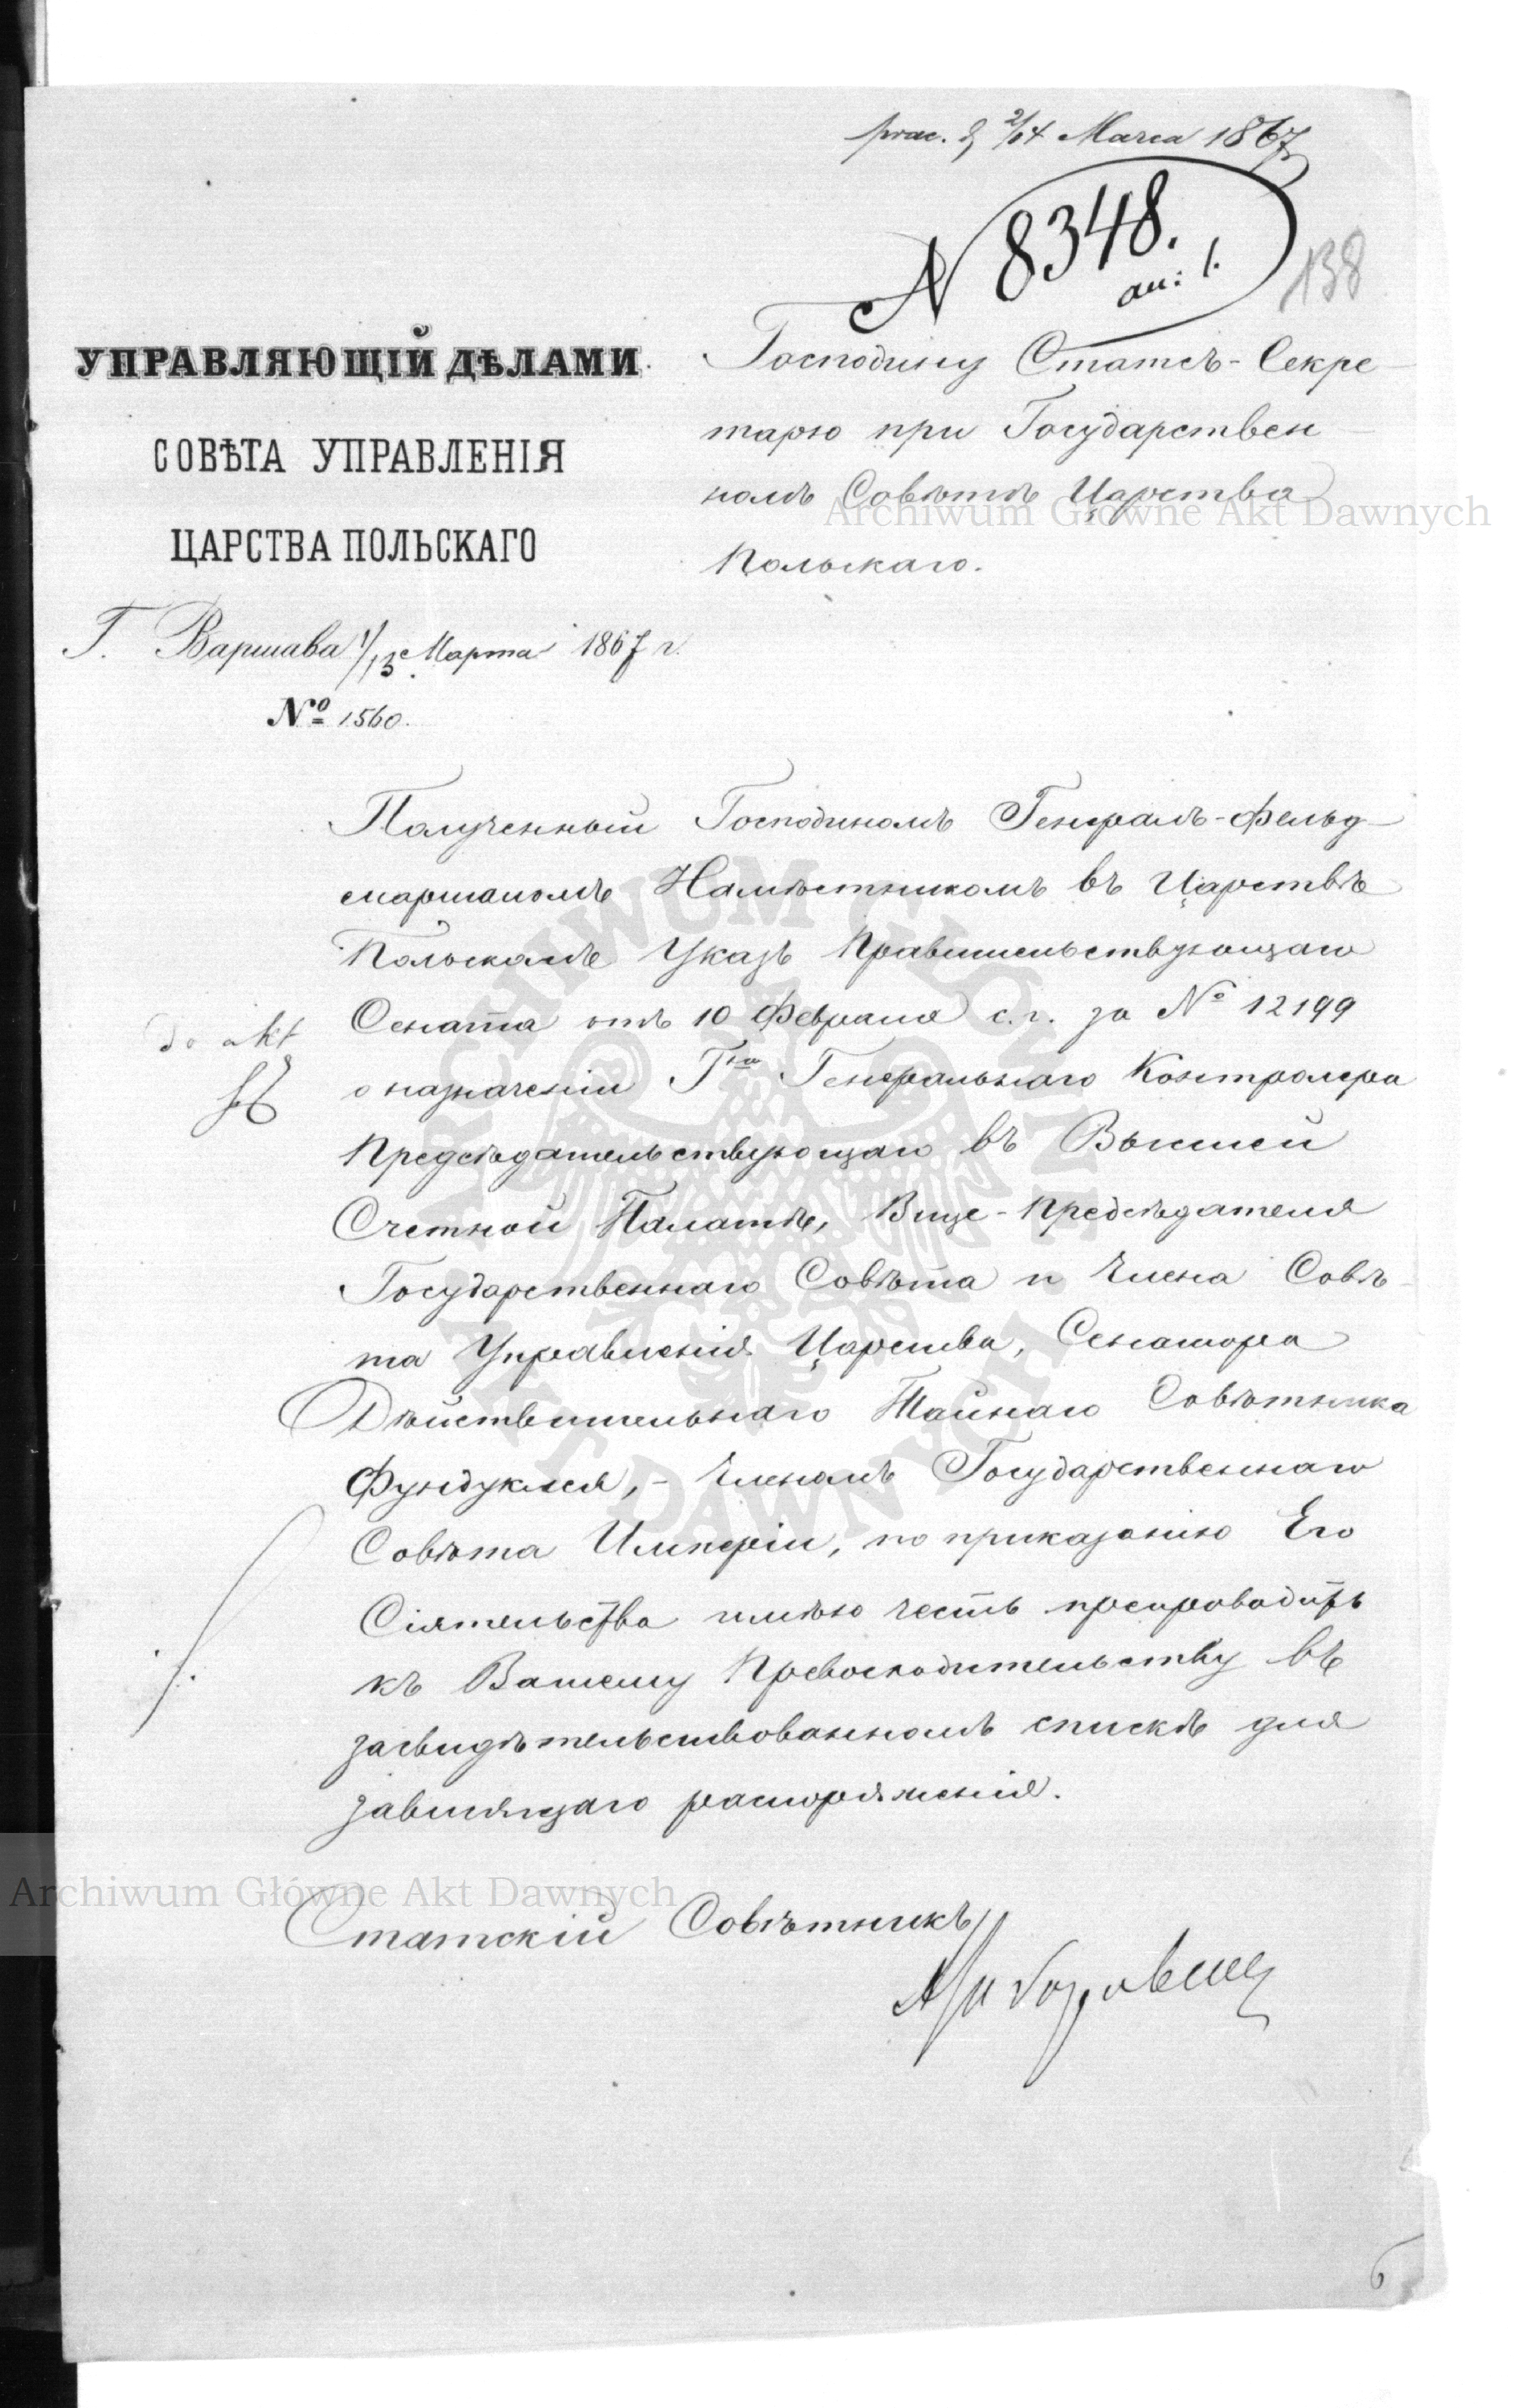 2/14 Marca 1867
N 8348.
an: 1.
138
УПРАВЛЯЮЩІЙ ДѢЛАМИ
СОВѢТА УПРАВЛЕНІЯ
ЦАРСТВА ПОЛЬСКАГО
Г. Варшава 1/13 Марта 1867 г.
№ 1560.
Господину Статсъ-Секре-
тарю при Государствен-
номъ Совѣтѣ Царства
Польскаго.
Полученный Господиномъ Генералъ-Фельд-
маршаломъ Намѣстникомъ въ Царствѣ
Польскомъ Указъ Правительствующаго
Сената отъ 10 Февраля с.г. за № 12199
do akt
о назначеніи Гна Генеральнаго Контролера
Предсѣдательствующаго въ Высшей
Счетной Палатѣ, Вице-Предсѣдателя
Государственнаго Совѣта и Члена Совѣ-
та Управленія Царства, Сенатора
Дѣйствительнаго Тайнаго Совѣтника
Фундуклея, - Членомъ Государственнаго
Совѣта Имперіи, по приказанію Его
Сіятельства имѣю честь препроводить
къ Вашему Превосходительству въ
засвидѣтельствованномъ спискѣ для
зависящаго распоряженія.
Статскій Совѣтникъ
Archiwum Główne Akt Dawnych
Archiwum Główne Akt Dawnych
ARCHIWUM GŁÓWNE AKT DAWNYCH